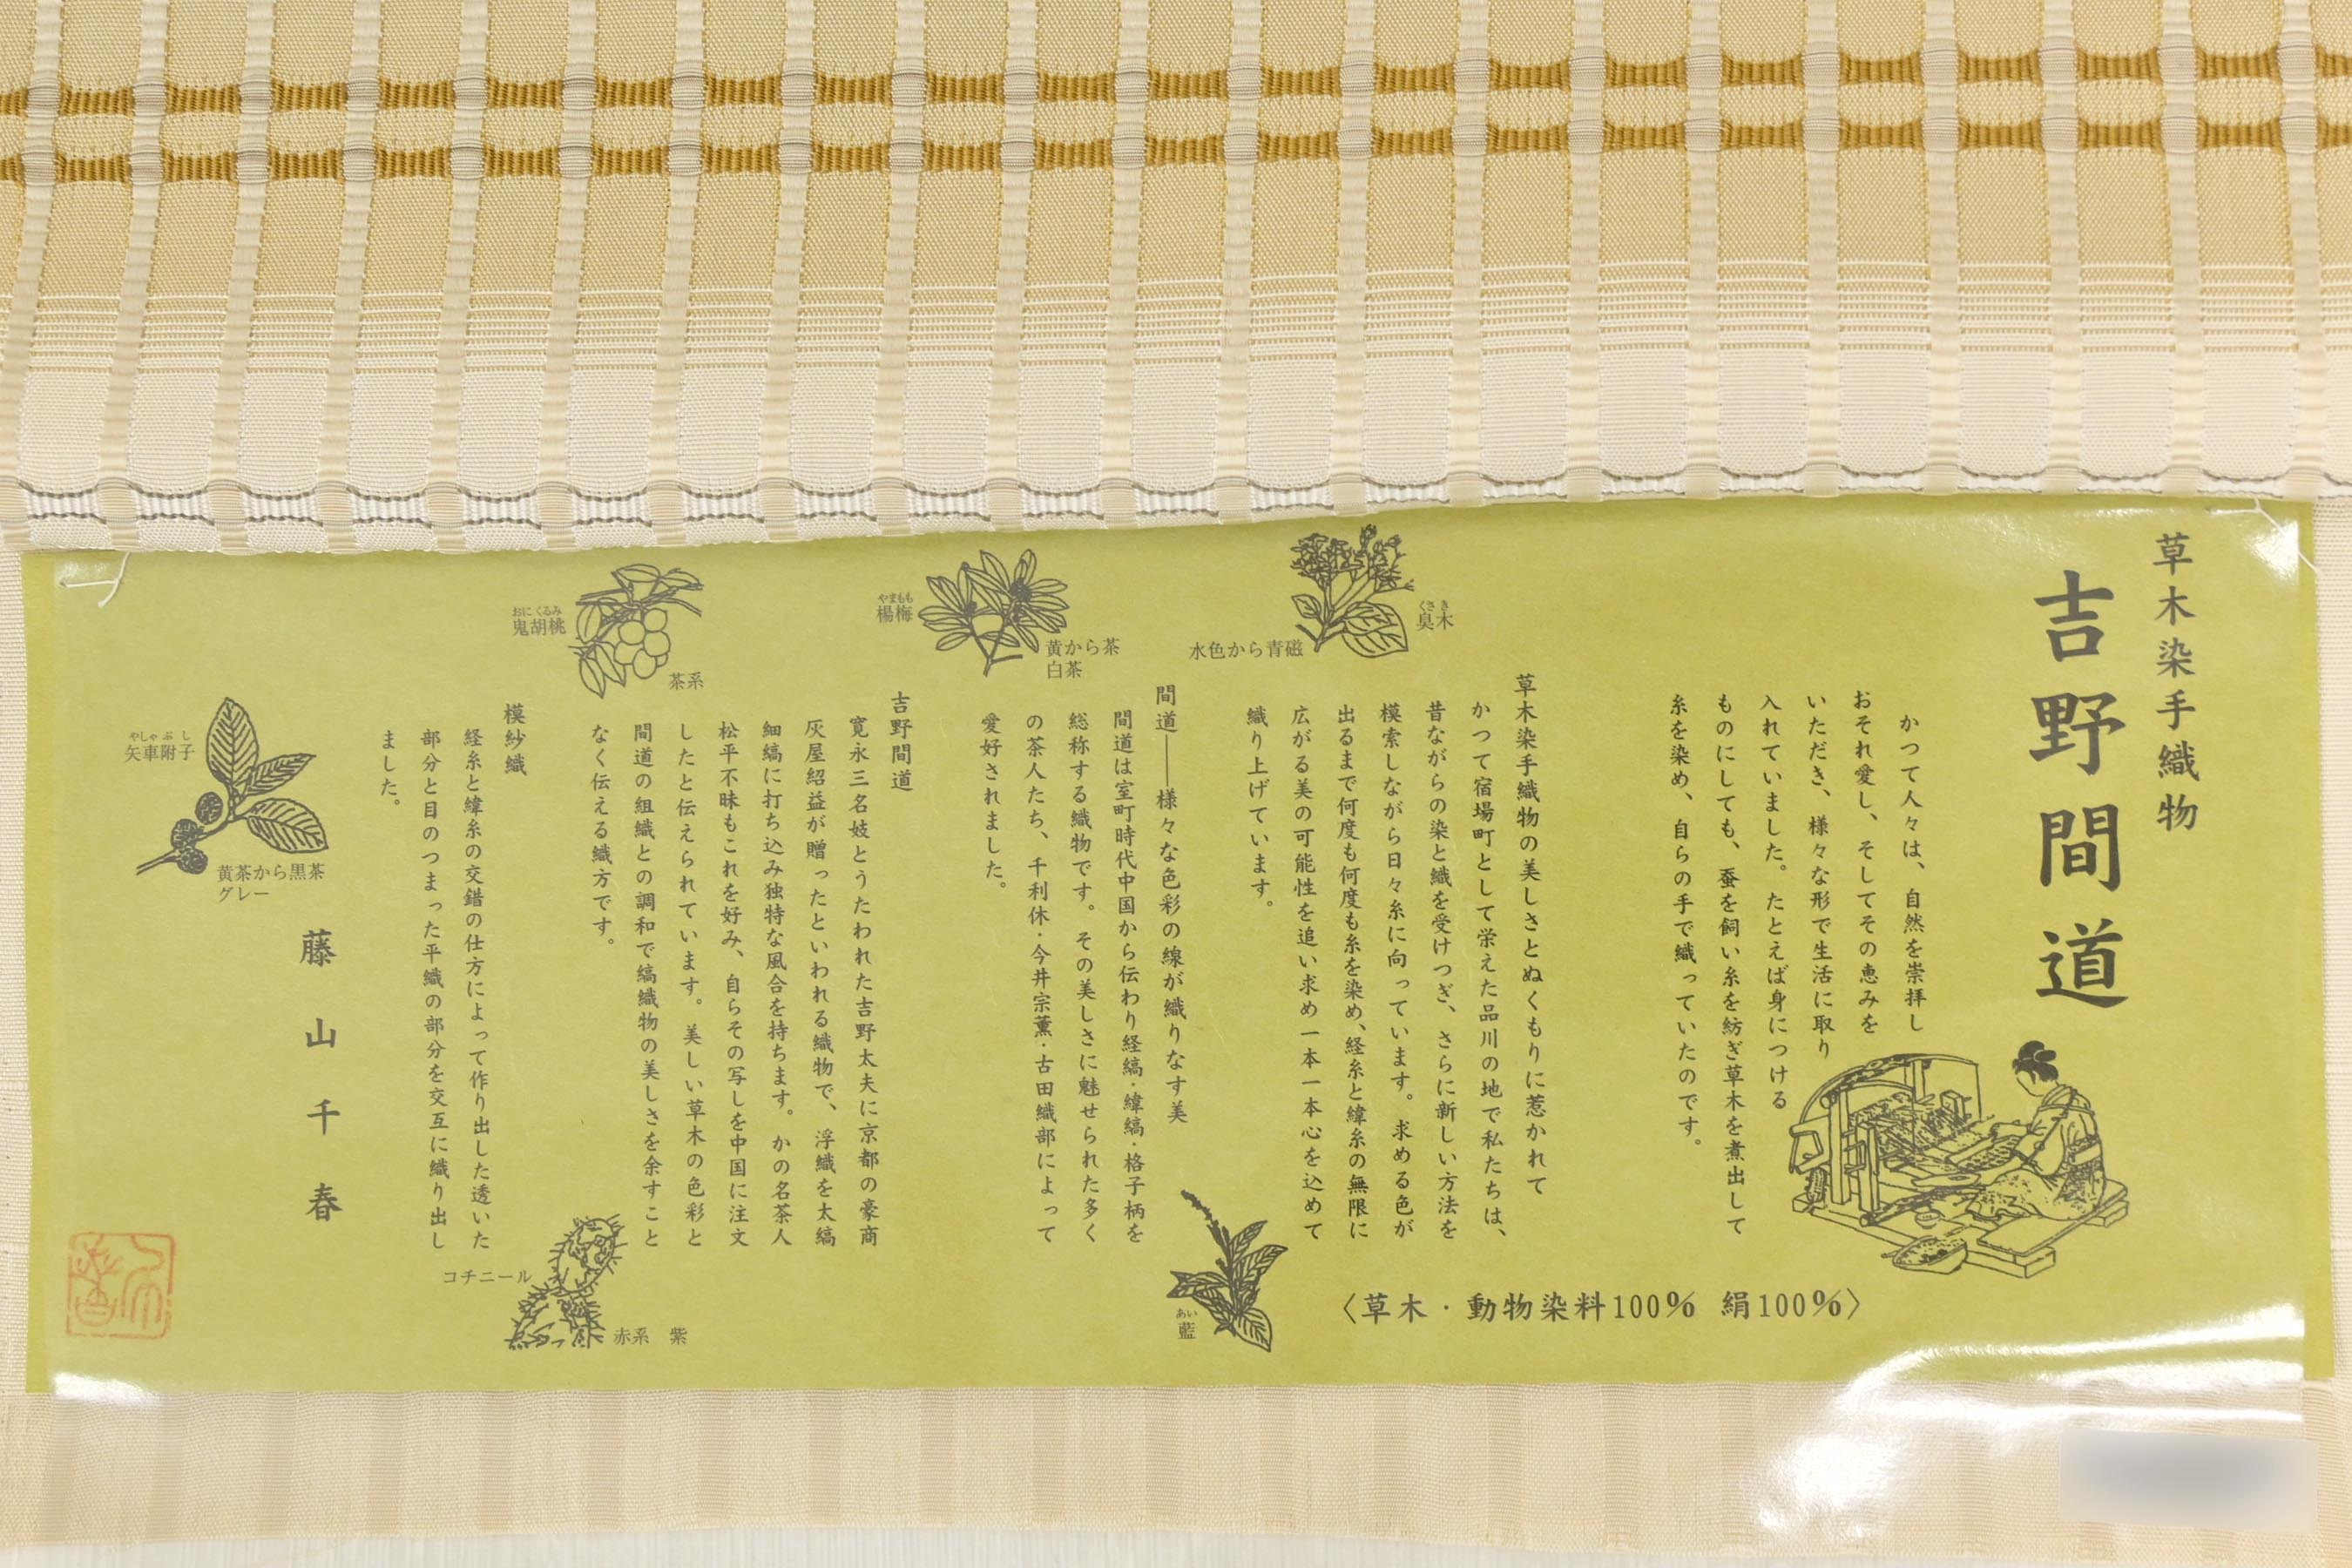 草木染手織物
吉野間道
かつて人々は、自然を崇拝し
おそれ愛し、そしてその恵みを
いただき、様々な形で生活に取り
入れていました。たとえば身につける
ものにしても、蚕を飼い糸を紡ぎ草木を煮出して
糸を染め、自らの手で織っていたのです。
〈草木・動物染料100% 絹100%〉
草木染手織物の美しさとぬくもりに惹かれて
かつて宿場町として栄えた品川の地で私たちは、
昔ながらの染と織を受けつぎ、さらに新しい方法を
模索しながら日々糸に向っています。求める色が
出るまで何度も何度も糸を染め、経糸と緯糸の無限に
広がる美の可能性を追い求め一本一本心を込めて
織り上げています。
くさき
臭木
水色から青磁
あい
藍
間道――様々な色彩の線が織りなす美
間道は室町時代中国から伝わり経縞・緯縞・格子柄を
総称する織物です。その美しさに魅せられた多く
の茶人たち、千利休・今井宗薫・古田織部によって
愛好されました。
やまもも
楊梅
黄から茶
白茶
吉野間道
寛永三名妓とうたわれた吉野太夫に京都の豪商
灰屋紹益が贈ったといわれる織物で、浮織を太縞
細縞に打ち込み独特な風合を持ちます。かの名茶人
松平不昧もこれを好み、自らその写しを中国に注文
したと伝えられています。美しい草木の色彩と
間道の組織との調和で縞織物の美しさを余すこと
なく伝える織方です。
おにくるみ
鬼胡桃
茶系
模紗織
経糸と緯糸の交錯の仕方によって作り出した透いた
部分と目のつまった平織の部分を交互に織り出し
ました。
コチニール
赤系 紫
やしゃぶし
矢車附子
黄茶から黒茶
グレー
藤山千春